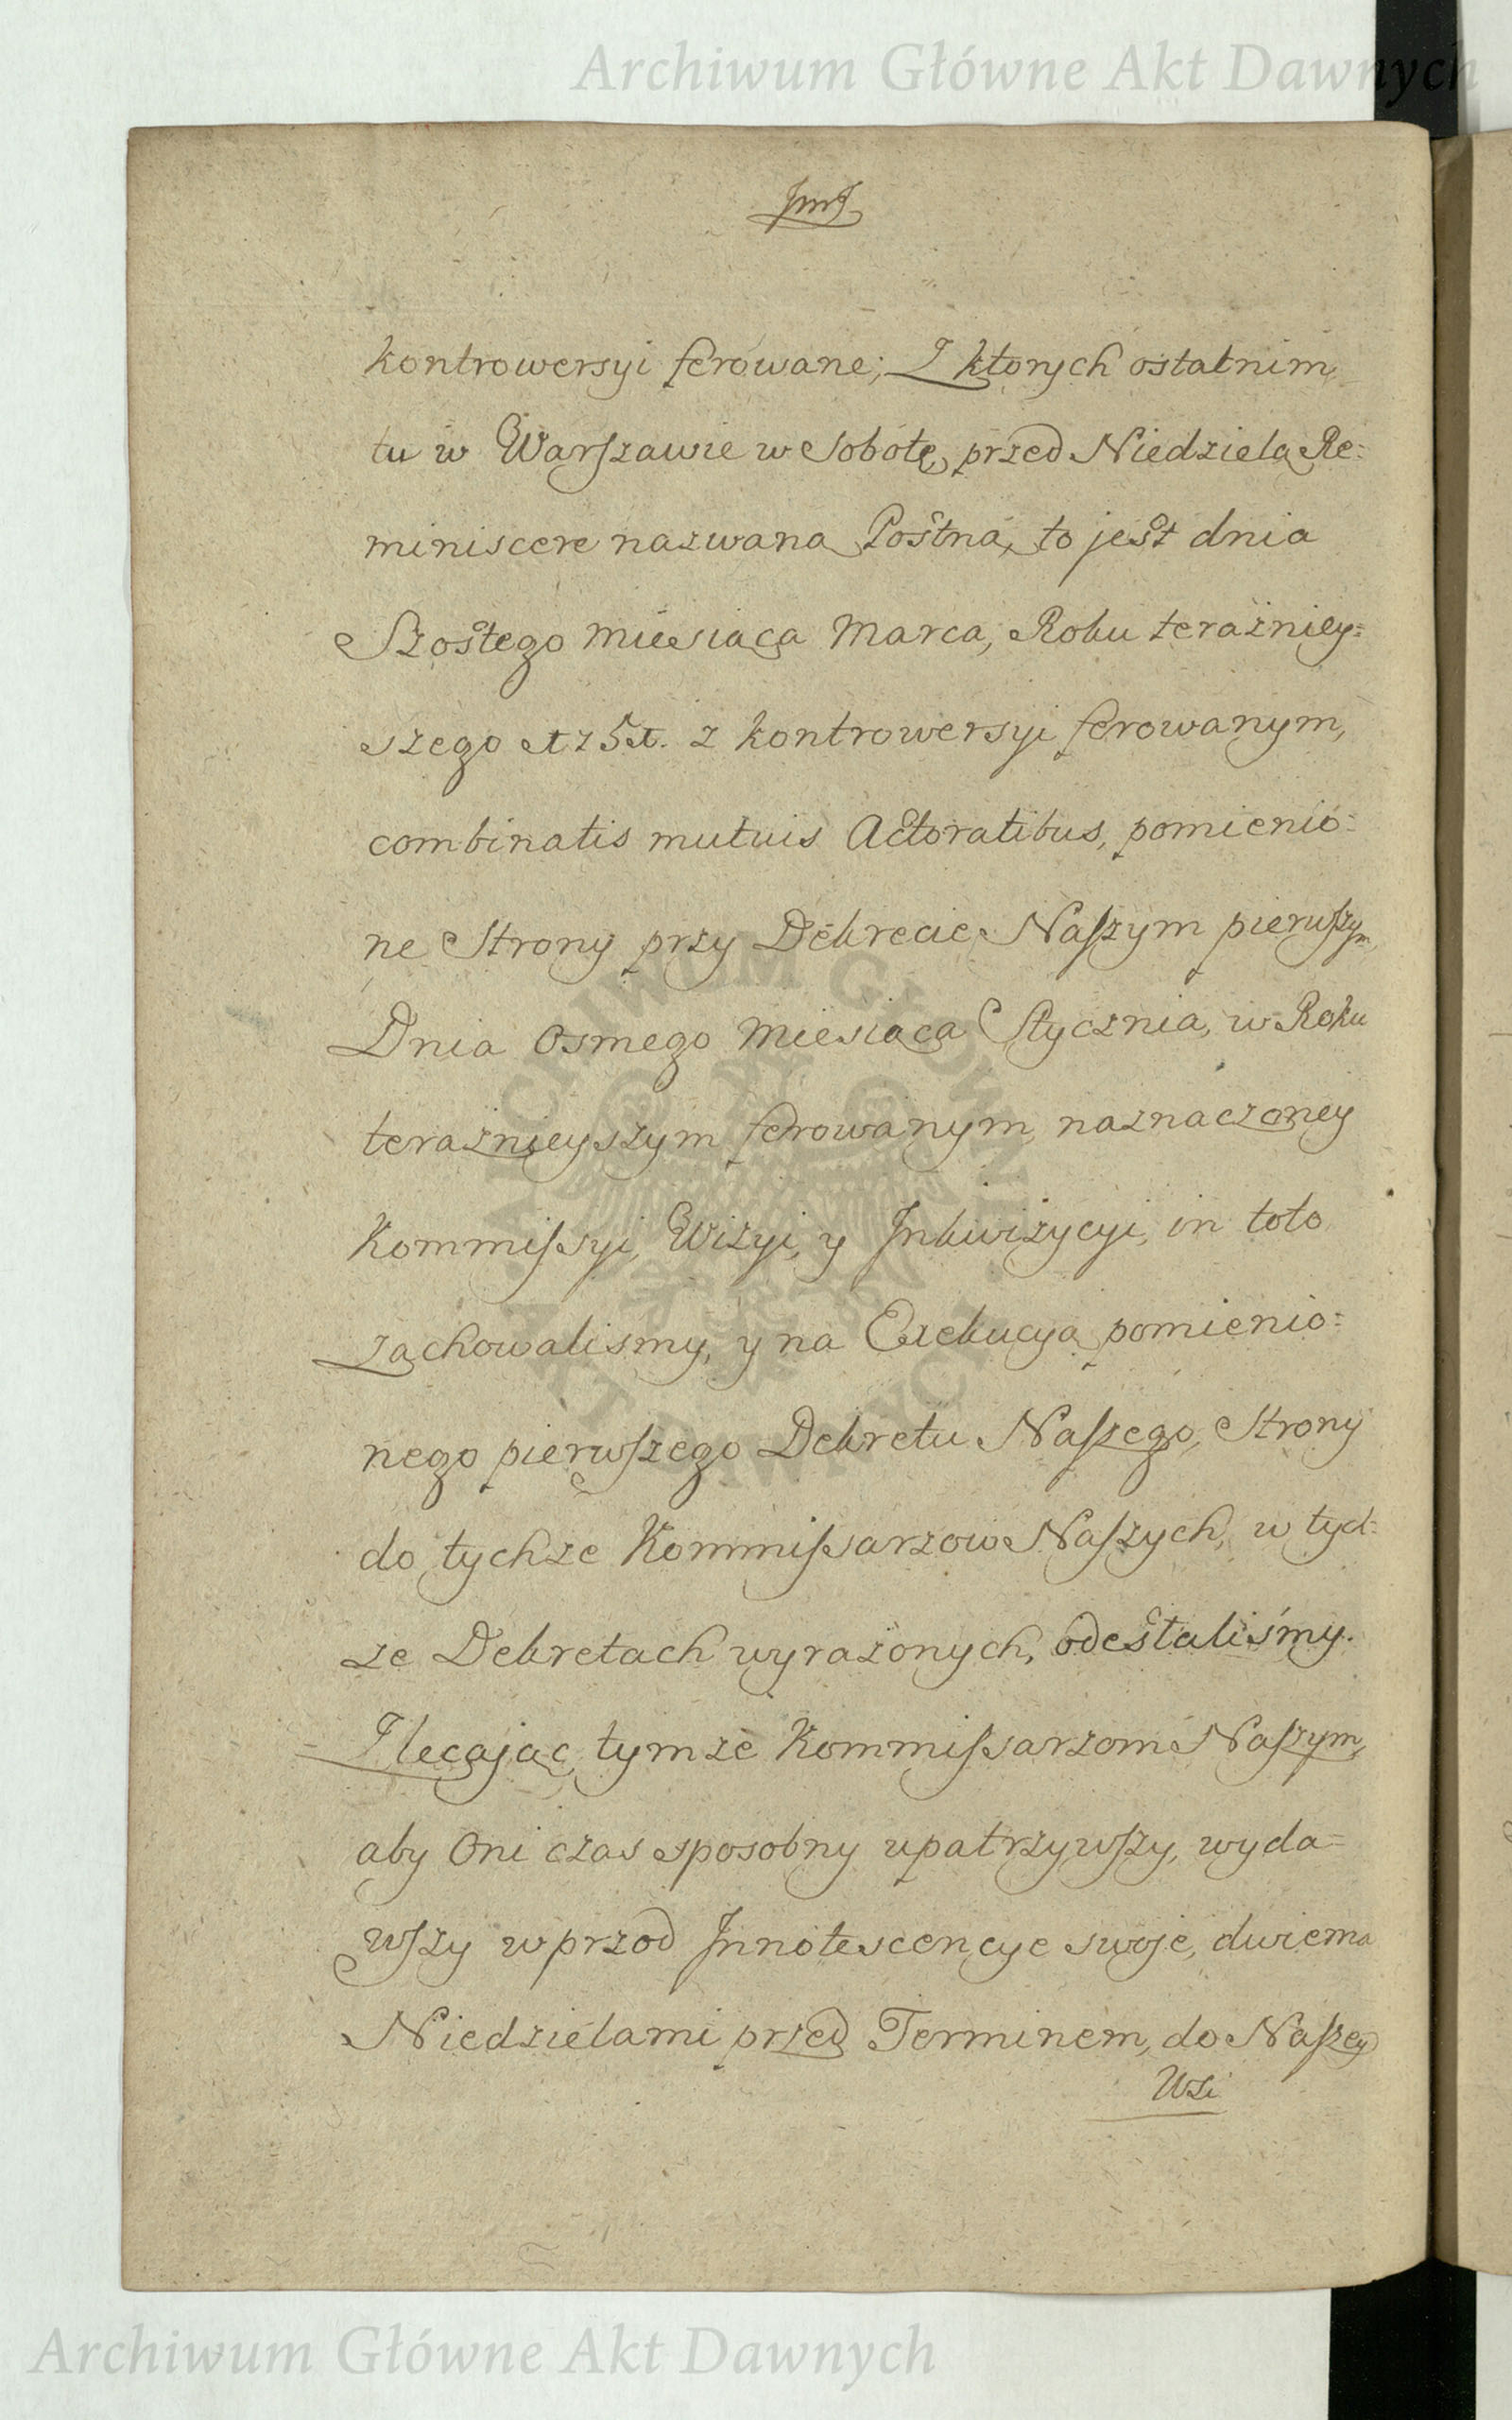 Archiwum Główne Akt Dawnych
kontrowersyi ferowane; Z ktorych ostatnim
tu w Warszawie w Sobotę przed Niedzielą Re=
miniscere nazwaną Postną, to jest dnia
Szostego Miesiąca Marca, Roku teraźniey=
szego 1751. z kontrowersyi ferowanym,
combinatis mutuis Actoratibus, pomienio=
ne Strony przy Dekrecie Naszym pierwszym
Dnia Osmego Miesiąca Stycznia, w Roku
teraźnieyszym ferowanym naznaczoney
Kommissyi, Wizyi, y Inkwizycyi, in toto
zachowalismy, y na Exekucyą pomienio=
nego pierwszego Dekretu Naszego, Strony
do tychże Kommissarzow Naszych, w tych=
że Dekretach wyrażonych, odesłaliśmy.
Zlecaiąc tymże Kommissarzom Naszym,
aby Oni czas sposobny upatrzywszy, wyda=
wszy wprzod Innotescencye swoje, dwiema
Niedzielami przed Terminem, do Naszey
Wsi
ARCHIWUM GŁÓWNE AKT DAWNYCH
Archiwum Główne Akt Dawnych